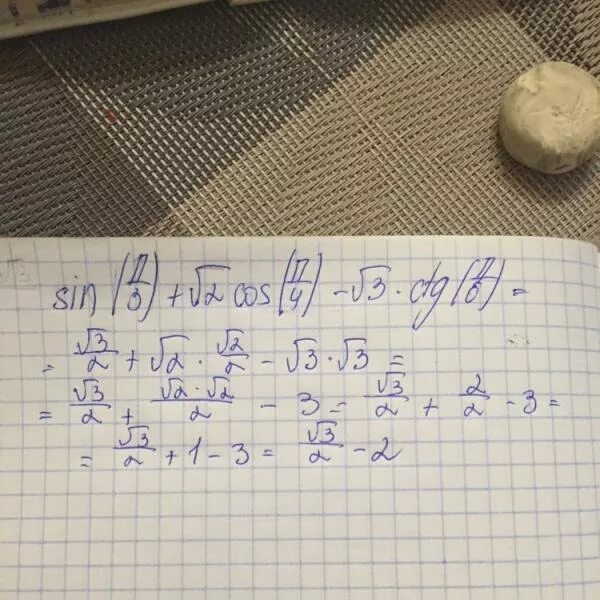 sin(π/3) + √2 cos(π/4) - √3 · ctg(π/6) =
= √3/2 + √2 · √2/2 - √3 · √3 =
= √3/2 + √2 · √2/2 - 3 = √3/2 + 2/2 - 3 =
= √3/2 + 1 - 3 = √3/2 - 2